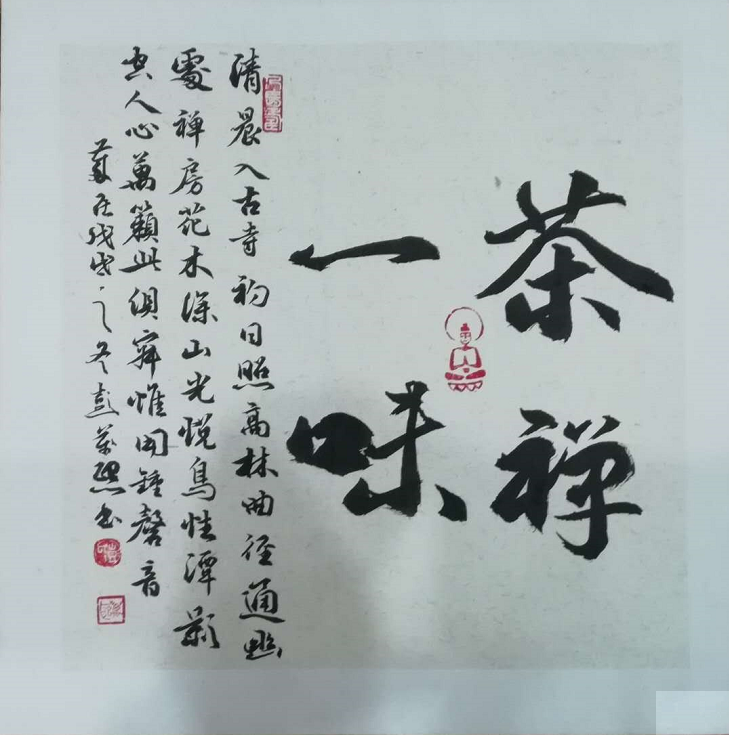 茶禅
一味
清晨入古寺初日照高林曲径通幽
處禅房花木深山光悦鳥性潭影
空人心萬籟此俱寂惟闻鍾磬音
歲在戊戌之冬彭熙书